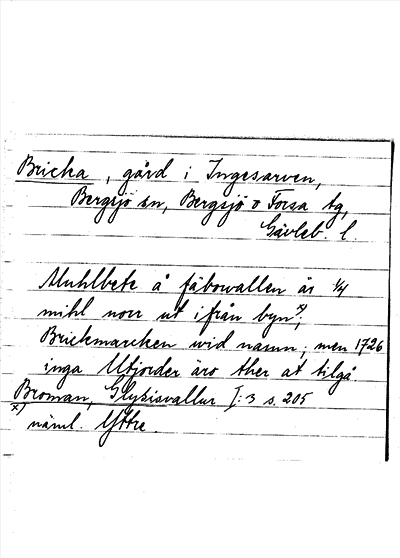 Bricka, gård i Ingesarven,
Bergsjö sn, Bergsjö o Forsa tg,
Gävleb. l.
Muhlbete å fäbowallen är 1/4
mihl norr ut ifrån byn x),
Brickmarcken wid namn; men 1726
inga Utjorder äro ther at tilgå.
Broman, Glysisvallur I:3 s. 205
x) näml. Yttre.